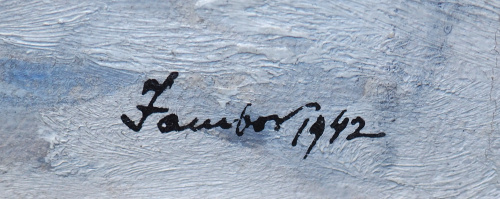 Jambor 1942